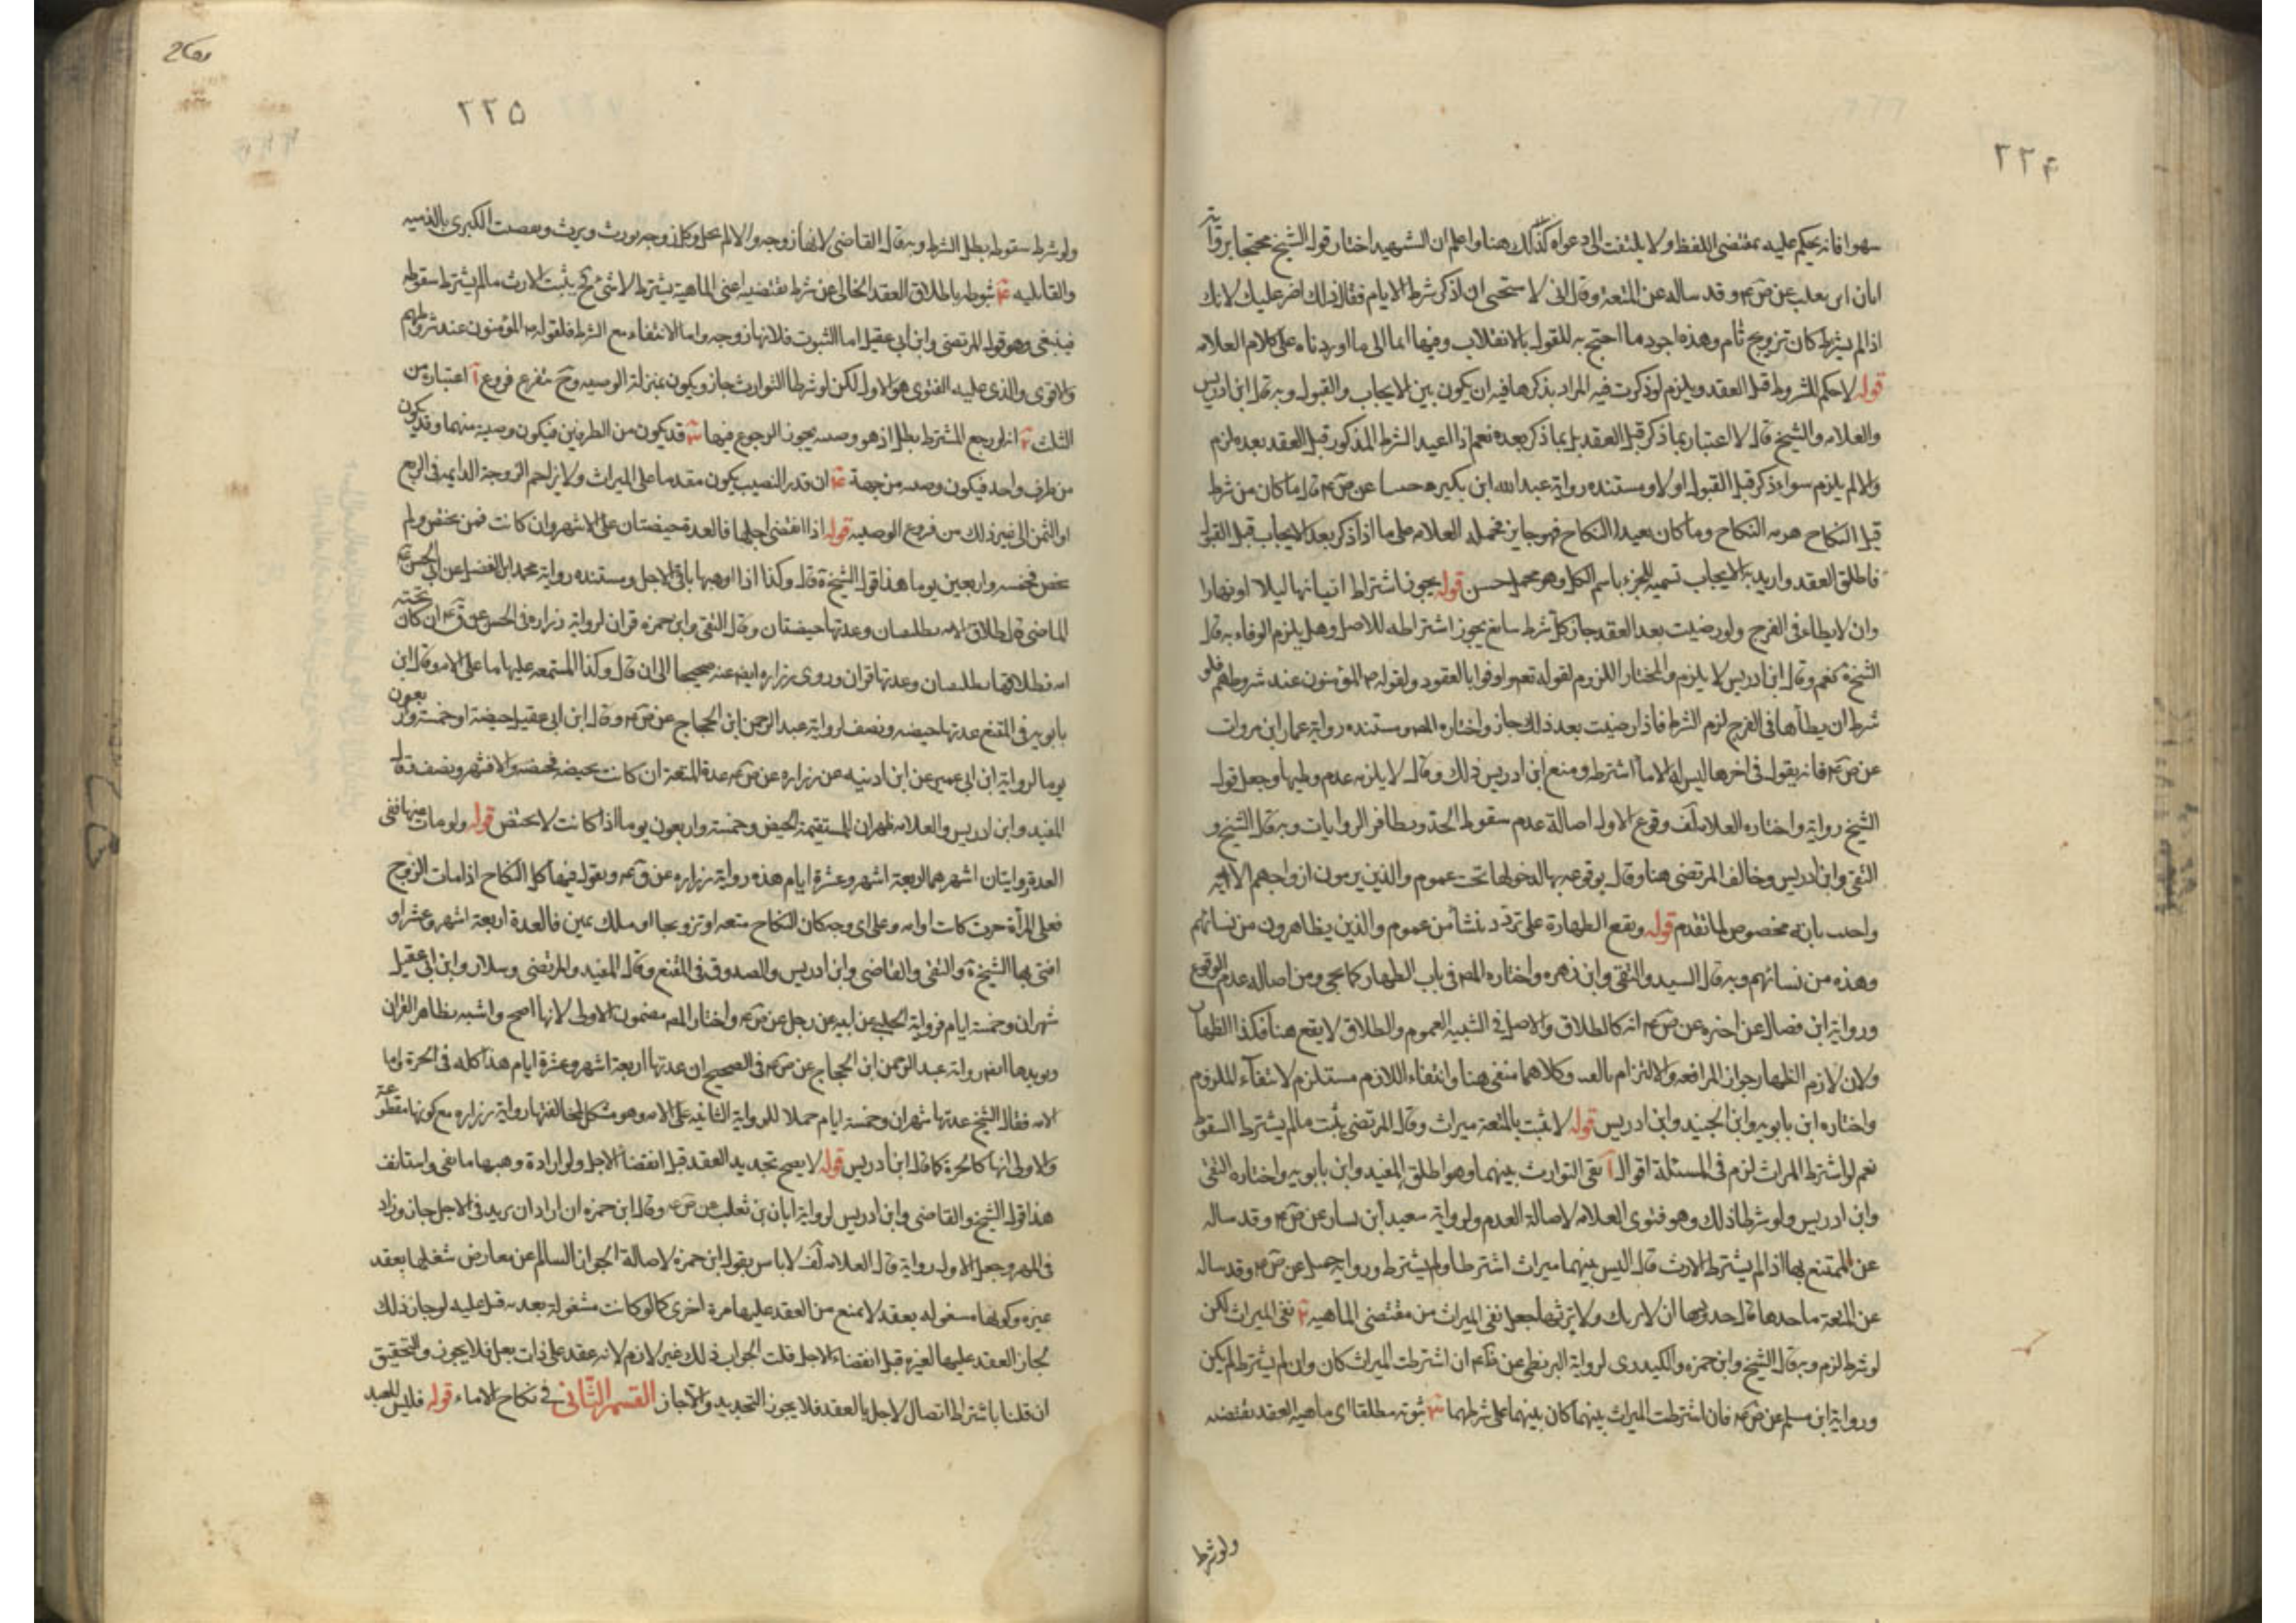 ٢٢۴
سهوا فانه يحكم عليه بمقتضى اللفظ ولا يلتفت الى دعواه كذلك هنا واعلم ان الشهيد اختار قول الشيخ محتجا برواية
ابان ابن تغلب عن ص ع م وقد ساله عن المتعة وقال انى لا ستحيى ان اذكر شرط الايام فقال ذلك اضر عليك لانك
اذا لم يشترط كان تزويج ثام وهذه اجود ما احتج به للقول بالانقلاب وفيها ايما الى ما اوردناه على كلام العلامه
قوله لا حكم للشروط قبل العقد ويلزم لو ذكرت فيه المراد بذكرها فيه ان يكون بين الايجاب والقبول وبه قال ابن ادريس
والعلامه والشيخ قال لا اعتبار بما ذكر قبل العقد بل بما ذكر بعده نعم اذا اعيد الشرط المذكور قبل العقد بعده لزم
والا لم يلزم سواء ذكر قبل القبول او لا ومستنده رواية عبد الله ابن بكير حسا عن ص ع م قال ما كان من شرط
قبل النكاح هدمه النكاح وما كان بعيدا النكاح فهو جايز فحمله العلامه على ما اذا ذكر بعد الايجاب قبل القبول
فاطلق العقد واريد به الايجاب تسمية للجزء باسم الكل وهو محمل حسن قوله يجوز اشتراط اتيانها ليلا او نهارا
وان لا يطاء فى الفرج ولو رضيت بعد العقد جاز كل شرط سايغ يجوز اشتراطه للاصل وهل يلزم الوفاء به قال
الشيخ ة نعم وقال ابن ادريس لا يلزم والمختار اللزوم لقوله تعم اوفوا بالعقود ولقوله ص المؤمنون عند شروطهم فلو
شرط ان يطأها فى الفرج لزم الشرط فاذا رضيت بعد ذلك جاز واختاره المص ومستنده رواية عمار ابن مروان
عن ص ع م فانه يقول فى اخرها ليس له الا ما اشترط ومنع ابن ادريس ذلك وقال لا يلزمه عدم وطيها وجعل قول
الشيخ رواية واختاره العلامه لف وقوع الاول اصالة عدم سقوط الحد وتظافر الروايات وبه قال الشيخ و
التقى وابن ادريس وخالف المرتضى هنا وقال بوقوعه بها لدخولها تحت عموم والذين يرمون ازواجهم الايه
واجيب بانه مخصوص لما تقدم قوله ويقع الظهارة على تردد ينشأ من عموم والذين يظاهرون من نسائهم
وهذه من نسائهم وبه قال السيد والتقى وابن زهره واختاره المص فى باب الظهار كما يجى ومن اصاله عدم الوقوع
ورواية ابن فضال عن اخبره عن ص ع م انه كالطلاق والاصل فى التشبيه العموم والطلاق لا يقع هنا فكذا الظهار
ولان لازم الظهار جواز المرافعه والالتزام بالفيه وكلاهما منفى هنا وانتفاء اللازم مستلزم لانتفاء للملزوم
واختاره ابن بابويه وابن الجنيد وابن ادريس قوله لا يثبت بالمتعة ميراث وقال المرتضى يثبت ما لم يشترط السقوط
نعم لو اشترط الميراث لزم فى المسئلة اقوال آ نفى التوارث بينهما وهو اطلق المفيد وابن بابويه واختاره التقى
وابن ادريس ولو شرطا ذلك وهو فتوى العلامه لاصالة العدم ولرواية سعيد ابن يسار عن ص ع م وقد ساله
عن المتمتع بها اذا لم يشترط الارث قال ليس بينهما ميراث اشترطا ولم يشترط وروايه جميل عن ص م وقد ساله
عن المتعة ما حدها قال حدودها ان لا ترثك ولا ترثها جعل نفى الميراث من مقتضى الماهيه ٢ نفى الميراث لكن
لو شرط لزم وبه قال الشيخ وابن حمزه والكيدرى لرواية البزنطى عن ضا ع م ان اشترطت الميراث كان وان لم يشترط لم يكن
ورواية ابن مسلم عن ص ع م فان اشترطت الميراث بينهما كان بينهما على شرطهما ٣ ثبوته مطلقا اى ماهية العقد تقتضيه
ولو شرط
٢٢۵
ولو شرط سقوطه بطل الشرط وبه قال القاضى لانها زوجه والا لم يحل وكل زوجه تورث ويرث وبعضت الكبرى بالذميه
والقاتليه ۴ ثبوطه باطلاق العقد الخالى عن شرط تقتضيه اعنى الماهية بشرط لا شئ ح يثبت الارث ما لم يشترط سقوطه
فينبغى وهو قول المرتضى وابن ابى عقيل اما الثبوت فلانها زوجه واما الانتفاء مع الشرط فلقوله ص المؤمنون عند شروطهم
والاقوى والذى عليه الفتوى هو الاول لكن لو شرطا التوارث جاز ويكون بمنزلة الوصيه وح يتفرع فروع آ اعتباره من
الثلث ٢ انه لو رجع المشترط بطل اذ هو وصيه يجوز الرجوع فيها ٣ قد يكون من الطرفين فيكون وصية منهما وقد يكون
من طرف واحد فيكون وصيه من جهة ۴ ان قدر النصيب يكون مقدما على الميراث ولا يزاحم الزوجة الدايمه فى الربع
او الثمن الى غير ذلك من فروع الوصيه قوله اذا انقضى اجلها فالعدة حيضتان على الاشهر وان كانت فمن تحيض ولم
تحض فخمسه واربعين يوما هذا قول الشيخ ة قال وكذا اذا وهبها باقى الاجل ومستنده رواية محمد ابن الفضل عن ابى الحسن ع
الماضى قال طلاق الامه تطليقتان وعدتها حيضتان وقال التقى وابن حمزه قران لرواية زراره فى الحسن عن ق ع م ان كان تحته
امه فطلاقها تطليقتان وعدتها قران وروى زراره ايضا عنه صحيحا الى ان قال وكذا المتمتعه عليها ما على الامه وقال ابن
بابويه فى المقنع عدتها حيضه ونصف لرواية عبد الرحمن ابن الحجاج عن ص ع م وقال ابن ابى عقيل حيضة او خمسة واربعون
يوما لرواية ابن ابى عمير عن ابن اذينه عن زراره عن ص ع م عدة المتعة ان كانت تحيض فحيضه والا فشهر ونصف قال
المفيد وابن ادريس والعلامه طهران للمستقيمة الحيض وخمسة واربعون يوما اذا كانت لا تحيض قوله ولو مات عنها ففى
العدة روايتان اشهرهما اربعة اشهر وعشرة ايام هذه رواية زراره عن ق ع م ويقول فيها كل النكاح اذا مات الزوج
فعلى المرأة حرة كانت او امه وعلى اى وجه كان النكاح متعه او تزويجا او ملك يمين فالعدة اربعة اشهر وعشرا و
افتى بها الشيخ ة والتقى والقاضى وابن ادريس والصدوق فى المقنع وقال المفيد والمرتضى وسلار وابن ابى عقيل
شهران وخمسة ايام فرواية الحلبى عن ابيه عن رجل عن ص ع م واختار المص مضمون الاولى لانها اصح واشبه بظاهر القران
ويويدها ايضا رواية عبد الرحمن ابن الحجاج عن ص ع م فى الصحيح ان عدتها اربعة اشهر وعشرة ايام هذا كله فى الحرة واما
الامه فقال الشيخ عدتها شهران وخمسة ايام حملا للرواية الثانيه على الامه وهو مشكل لمخالفتها رواية زراره مع كونها مقطوعة
والاولى انها كالحرة كما قال ابن ادريس قوله لا يصح تجديد العقد قبل انقضاء الاجل ولو اراده وهبها ما بقى واستانف
هذا قول الشيخ والقاضى وابن ادريس لرواية ابان بن تغلب عن ص ع وقال ابن حمزه ان اراد ان يزيد فى الاجل جاز وزاد
فى المهر وجعل الاول رواية قال العلامه لف لا باس بقول ابن حمزه لاصالة الجواز السالم عن معارض شغلها بعقد
غيره وكونها مشغوله بعقد لا يمنع من العقد عليها مرة اخرى كما لو كانت مشغولة بعدته قبل عليه لو جاز ذلك
لجاز العقد عليها لغيره قبل انقضاء الاجل قلت الجواب ذلك غير لازم لانه عقد على ذات بعل فلا يجوز والتحقيق
ان قلنا باشتراط اتصال الاجل بالعقد فلا يجوز التجديد والا جاز القسم الثانى فى نكاح الاماء قوله فليس للعبد